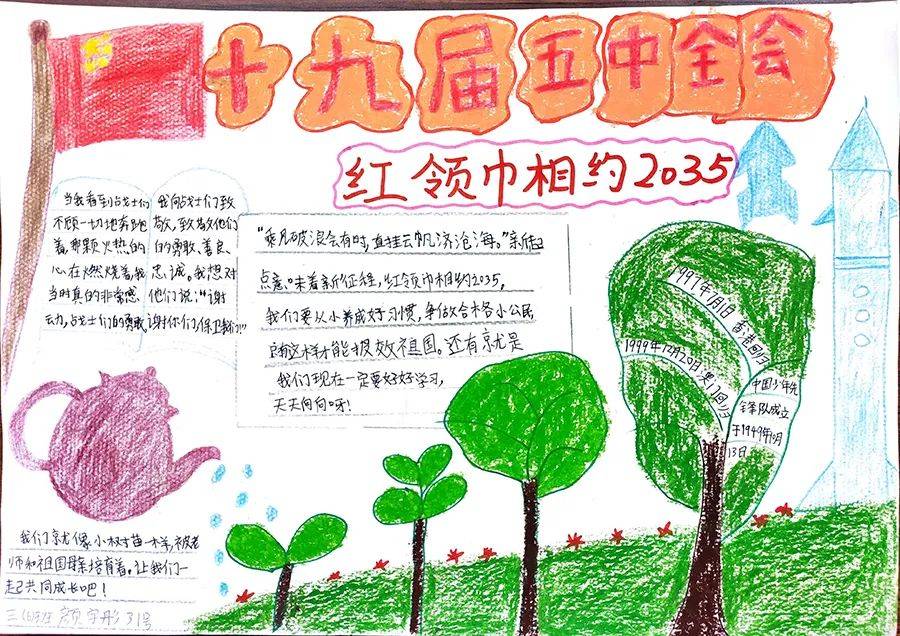 十九届五中全会
红领巾相约2035
当我看到战士们
不顾一切地奔跑
着,那颗火热的
心在燃烧着,我
当时真的非常感
动,战士们的勇敢
我向战士们致
敬,致敬他们
的勇敢、善良、
忠诚。我想对
他们说:“谢
谢你们,保卫我们!”
“乘风破浪会有时,直挂云帆济沧海。”新起
点意味着新征程,红领巾相约2035,
我们要从小养成好习惯,争做合格小公民
这样才能报效祖国。还有就是
我们现在一定要好好学习,
天天向向呀!
1997年7月1日香港回归
1999年12月20日澳门回归
中国少年先
锋队成立
于1949年10月
13日
我们就像小树苗一样,被老
师和祖国母亲培育着。让我们一
起共同成长吧!
三 班 颜 彤 31号